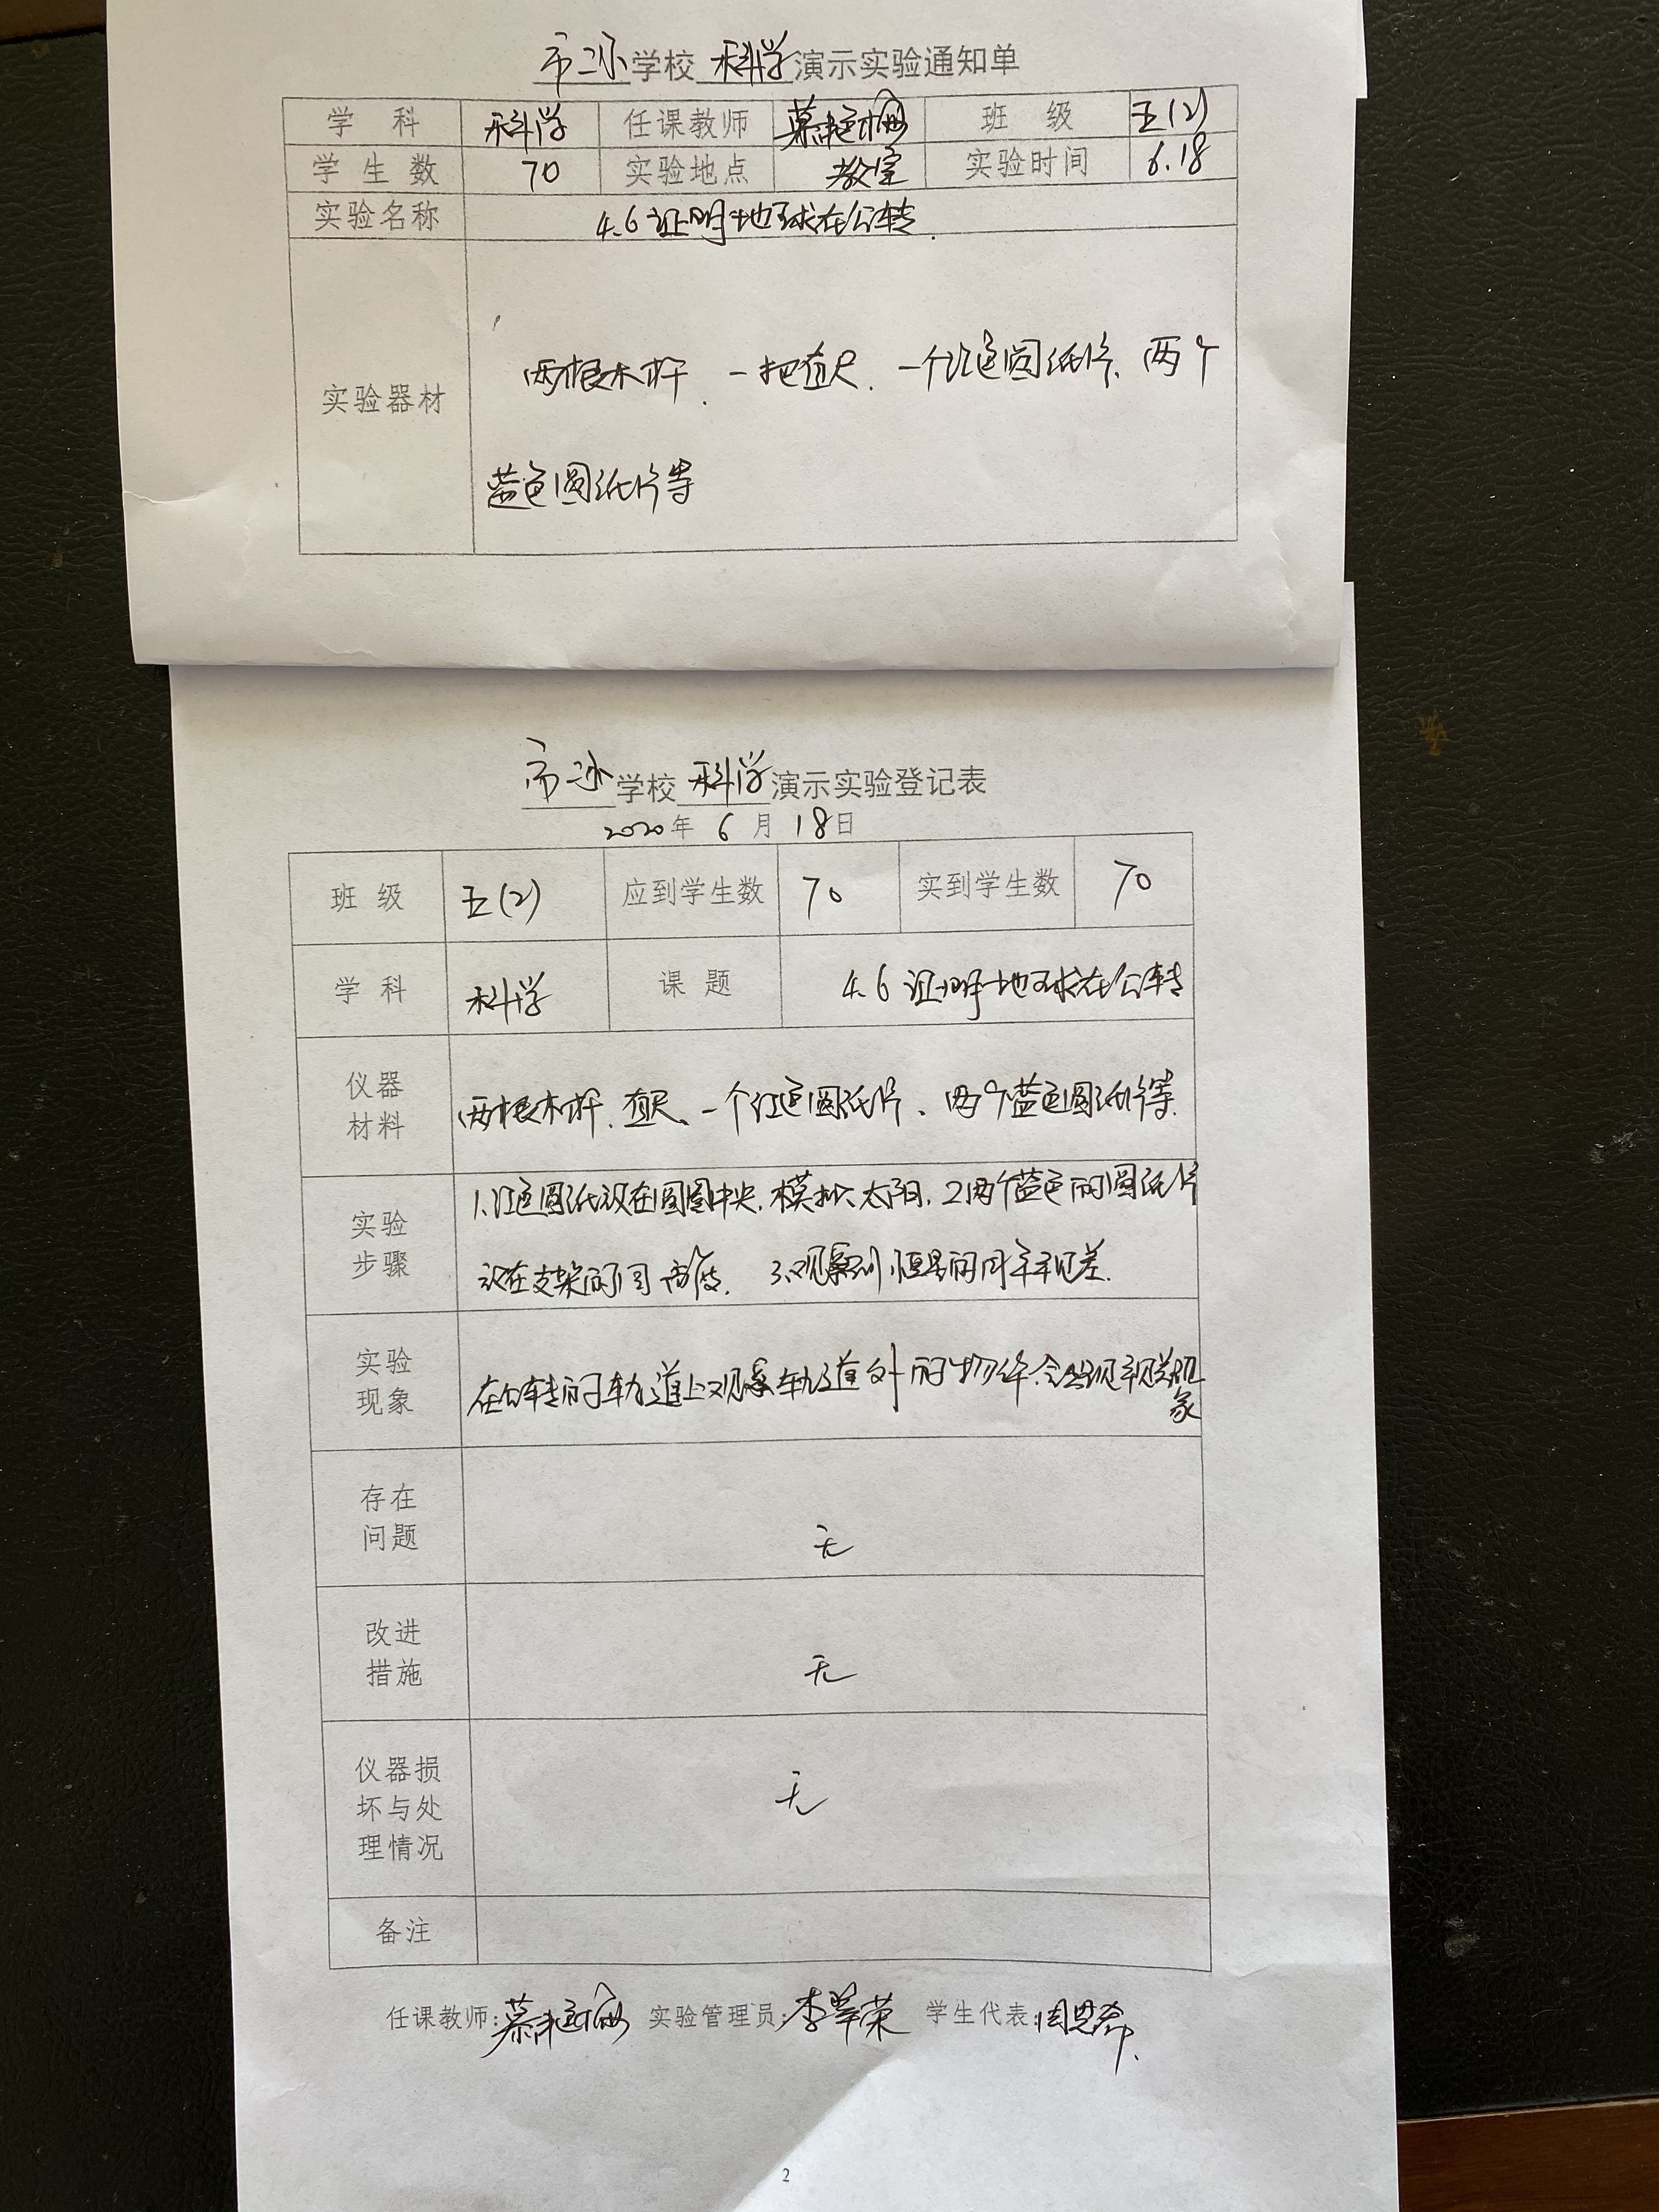 市二小学校 科学 演示实验通知单
学 科 科学 任课教师 班 级 五(2)
学 生 数 70 实验地点 教室 实验时间 6.18
实验名称 4.6证明地球在公转.
实验器材 两根木杆、一把直尺、一个红色圆纸片、两个
蓝色圆纸片等
市二小学校 科学 演示实验登记表
2020年 6 月 18日
班 级 五(2) 应到学生数 70 实到学生数 70
学 科 科学 课 题 4.6证明地球在公转
仪器
材料
两根木杆、直尺、一个红色圆纸片、两个蓝色圆纸片等.
实验
步骤
1.红色圆纸放在圆圈中央,模拟太阳,2.两个蓝色的圆纸片
放在支架的同高度. 3.观察到恒星的周年视差.
实验
现象
在公转的轨道上观察轨道外的物体会出现视差现
象
存在
问题
无
改进
措施
无
仪器损
坏与处
理情况
无
备注
任课教师: 实验管理员: 学生代表:
2